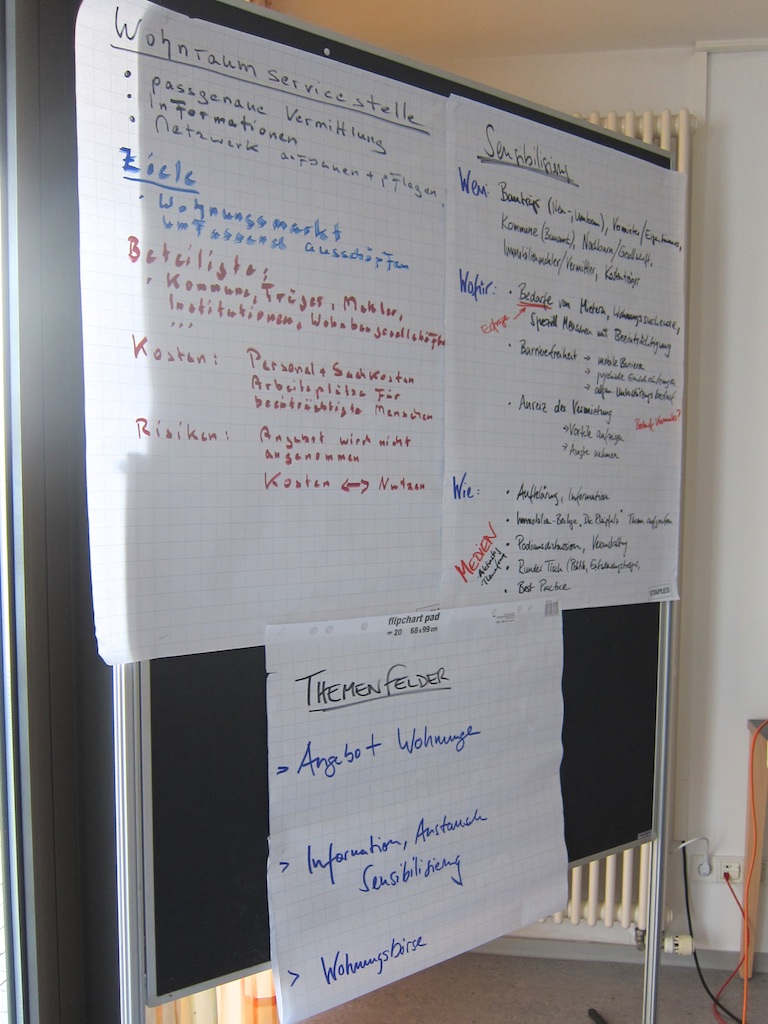 Wohnraumservicestelle
• passgenaue Vermittlung
• Informationen
• Netzwerk aufbauen + pflegen
Ziele
• Wohnungsmarkt
umfassend ausschöpfen
Beteiligte:
• Kommune, Träger, Makler,
Institutionen, Wohnbaugesellschaften
...
Kosten: Personal + Sachkosten
Arbeitsplätze für
beeinträchtigte Menschen
Risiken: Angebot wird nicht
angenommen
Kosten ↔ Nutzen
Sensibilisierung
Wen: Bauträger (Neu-, Umbau), Vermieter/Eigentümer,
Kommune (Bauamt), Nachbarn/Gesellschaft,
Immobilienmakler/Vermittler, Kostenträger
Wofür: • Bedarfe von Mietern, Wohnungssuchende,
speziell Menschen mit Beeinträchtigung
• Barrierefreiheit → bauliche Barriere
→ psychische Einschränkungen
→ Unterstützungsbedarf
• Anreiz der Vermietung
→ Vorteile aufzeigen
→ Ängste nehmen
Bedarf Vermieter?
Wie: • Aufklärung, Information
• Immobilien-Beilage "Die Rheinpfalz" Thema aufgreifen
• Podiumsdiskussion, Veranstaltung
• Runder Tisch (Politik,
• Best Practice
MEDIEN
STAPLES
flipchart pad
20 68 x 99 cm
THEMENFELDER
> Angebot Wohnungen
> Information, Austausch
Sensibilisierung
> Wohnungsbörse